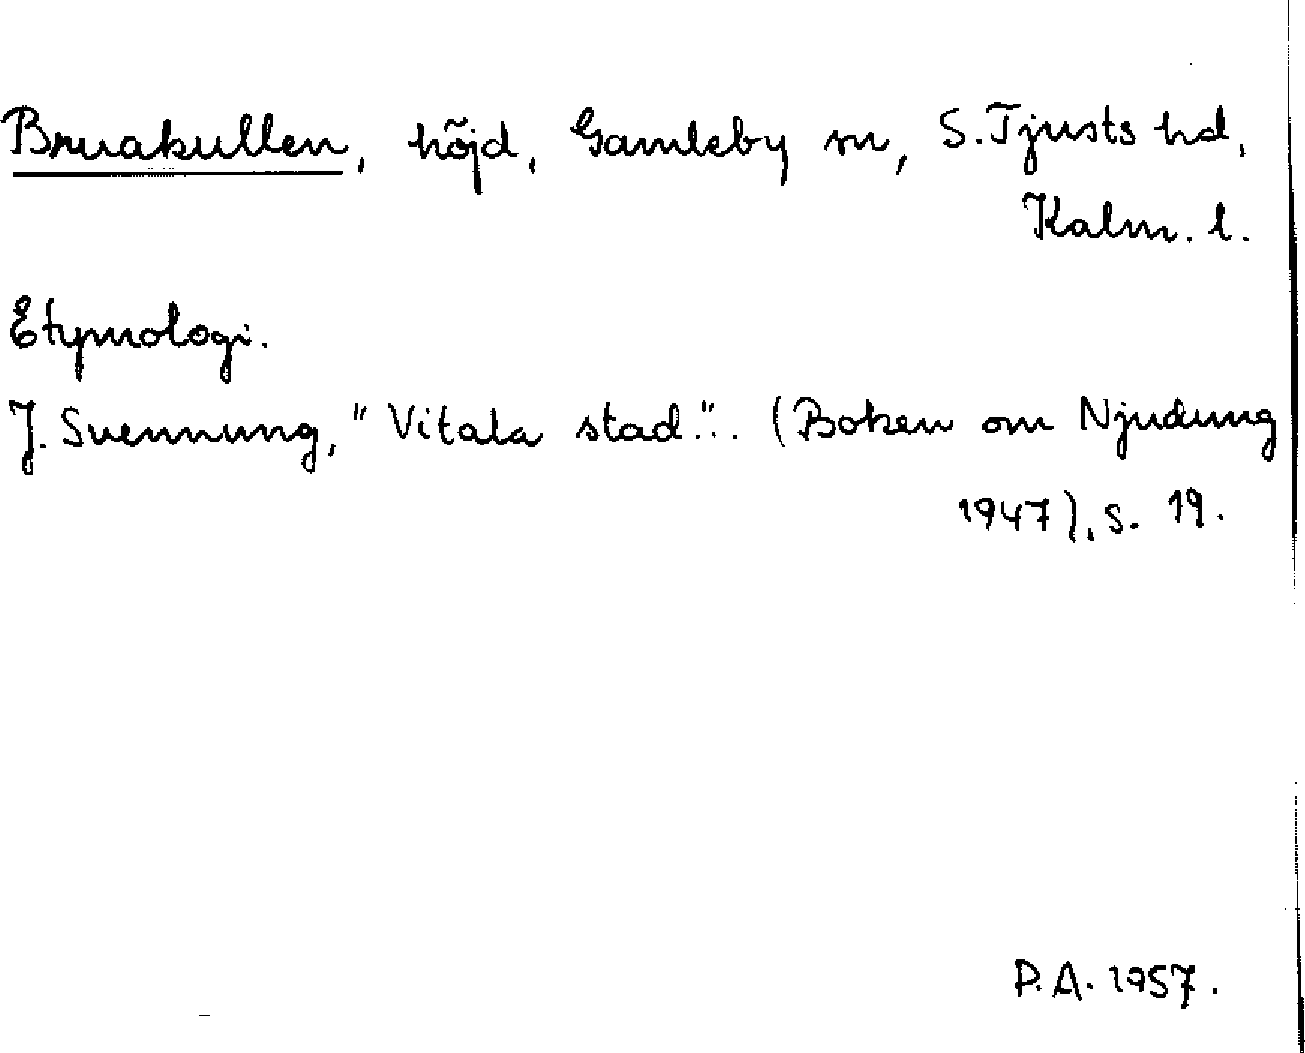 Bruakullen, höjd, Gamleby sn, S. Tjusts hd,
Kalm. l.
Etymologi.
J. Svennung, "Vitala stad"... (Boken om Njudung
1947), s. 19.
P.A. 1957.